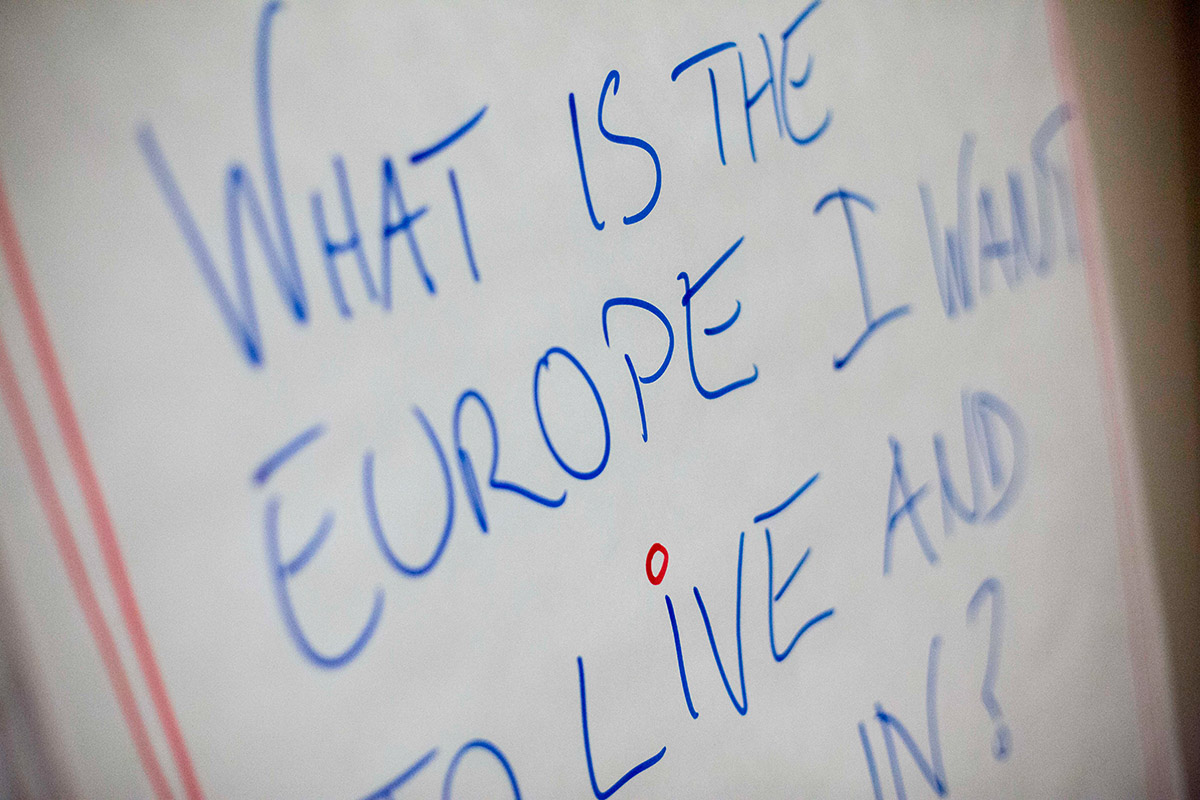 WHAT IS THE
EUROPE I WANT
TO LiVE AND
IN?